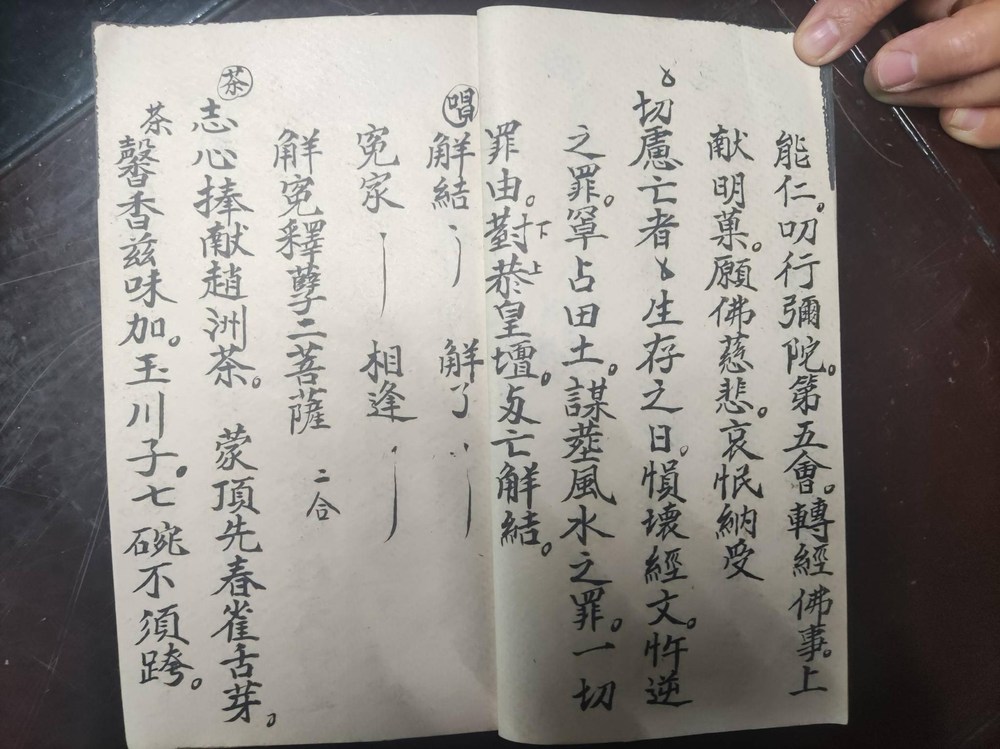 能仁。叨行彌陀。第五會。轉經佛事。上
献明菓。願佛慈悲。哀怋納受
切慮亡者〻生存之日。愪壞經文。忤逆
之罪。罩占田土。謀塟風水之罪。一切
罪由。對下菾上皇壇。与亡解結。
唱 解結 解了
冤家 相逢
解冤釋孽二菩薩 二合
茶 志心捧献趙洲茶。 蒙頂先春雀舌芽。
茶馨香兹味加。玉川子。七碗不須跨。